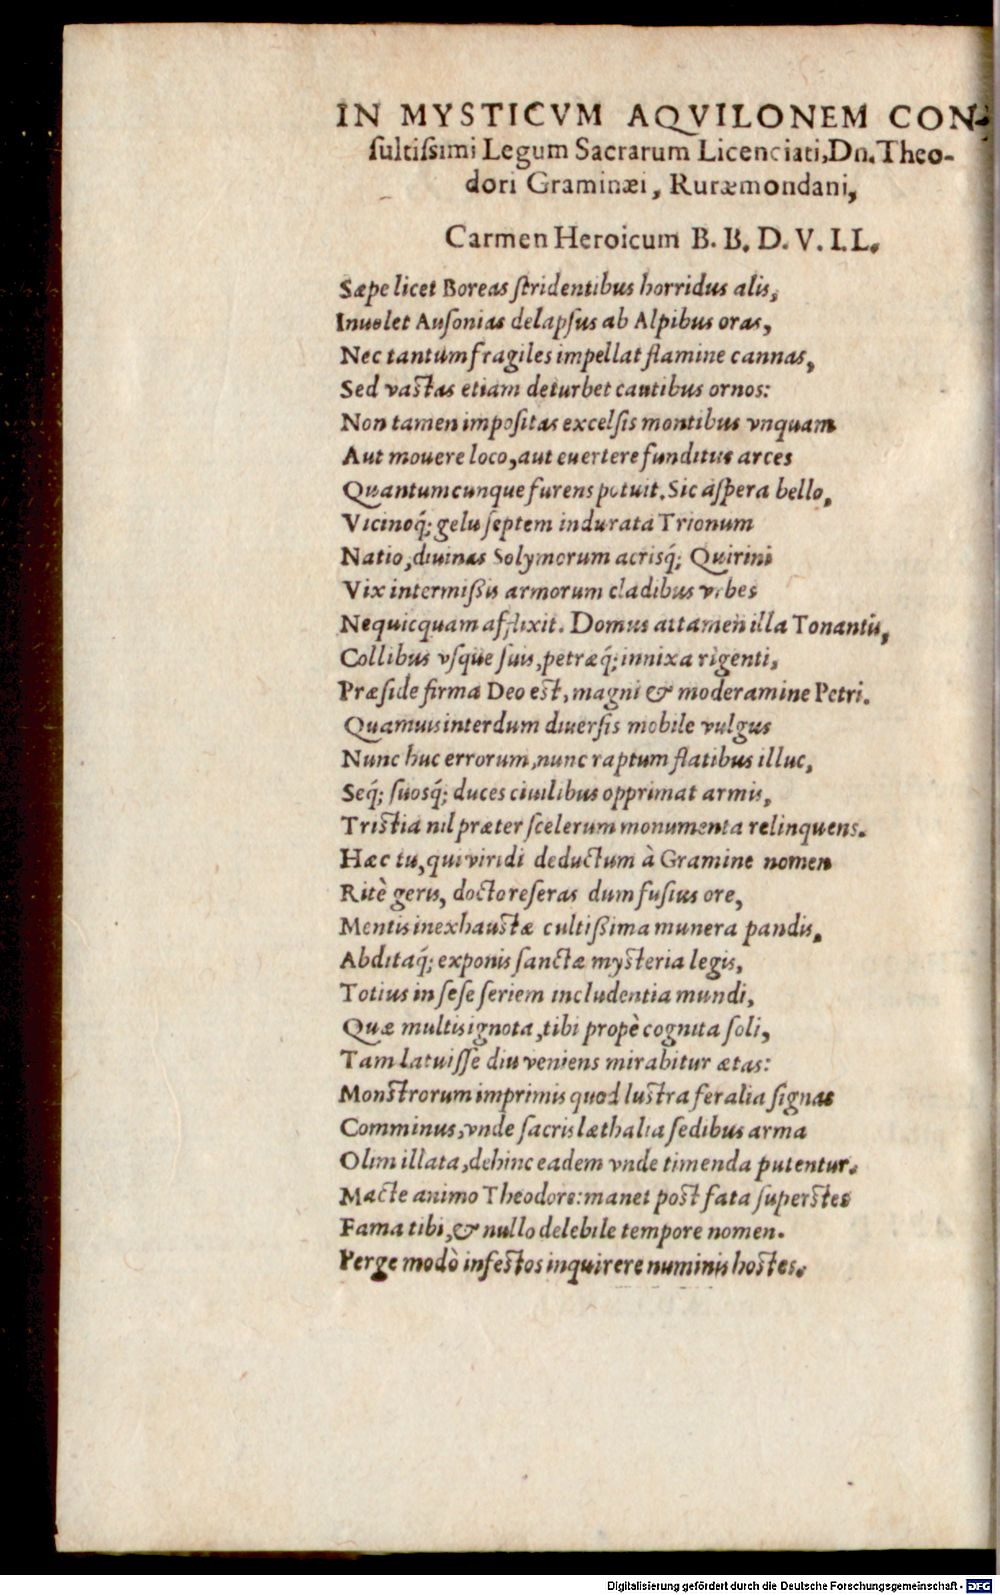 IN MYSTICVM AQVILONEM CON-
ſultiſsimi Legum Sacrarum Licenciati, Dn. Theo-
dori Graminæi, Ruræmondani,
Carmen Heroicum B. B. D. V. I. L.
Sæpe licet Boreas ſtridentibus horridus alis,
Inuolet Auſonias delapſus ab Alpibus oras,
Nec tantum fragiles impellat flamine cannas,
Sed vaſtas etiam deturbet cautibus ornos:
Non tamen impoſitas excelſis montibus vnquam
Aut mouere loco, aut euertere funditus arces
Quantumcunque furens potuit. Sic aſpera bello,
Vicinoq́; gelu ſeptem indurata Trionum
Natio, diuinas Solymorum acrisq́; Quirini
Vix intermißis armorum cladibus vrbes
Nequicquam afflixit. Domus attamen illa Tonantis,
Collibus vſque ſuis, petræq́; innixa rigenti,
Præſide firma Deo eſt, magni & moderamine Petri.
Quamuis interdum diuerſis mobile vulgus
Nunc huc errorum, nunc raptum flatibus illuc,
Seq́; ſuosq́; duces ciuilibus opprimat armis,
Triſtia nil præter ſcelerum monumenta relinquens.
Hæc tu, qui viridi deductum à Gramine nomen
Ritè geris, docto reſeras dum fuſius ore,
Mentis inexhauſtæ cultißima munera pandis,
Abditaq́; exponis ſanctæ myſteria legis,
Totius in ſeſe ſeriem includentia mundi,
Quæ multis ignota, tibi propè cognita ſoli,
Tam latuiſſe diu veniens mirabitur ætas:
Monſtrorum imprimis quod luſtra feralia ſignas
Comminus, vnde ſacris læthalia ſedibus arma
Olim illata, dehinc eadem vnde timenda putentur.
Macte animo Theodore: manet poſt fata ſuperſtes
Fama tibi, & nullo delebile tempore nomen.
Perge modò infeſtos inquirere numinis hoſtes.
Digitalisierung gefördert durch die Deutsche Forschungsgemeinschaft - DFG